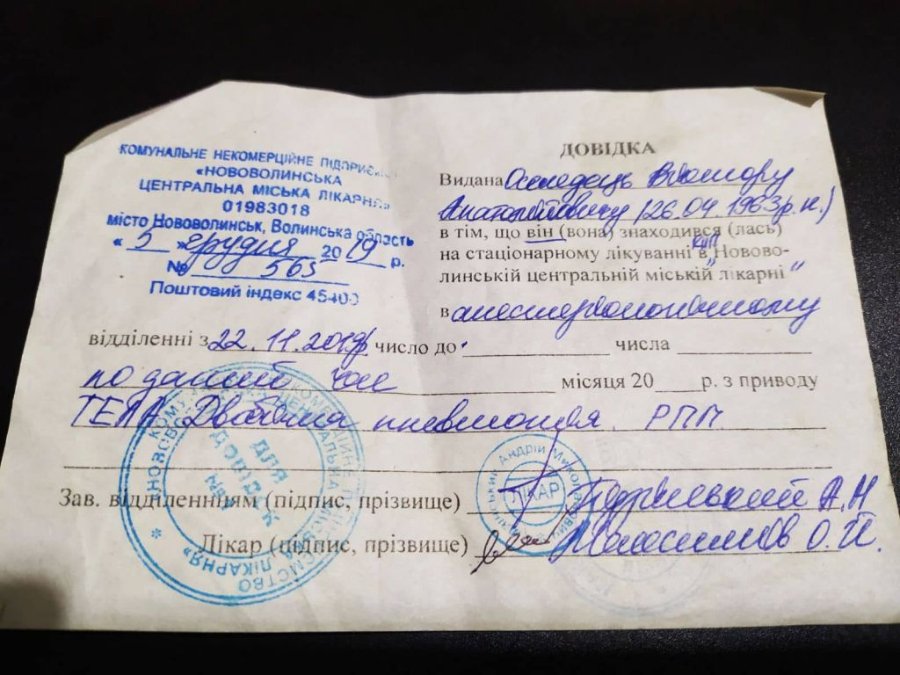 КОМУНАЛЬНЕ НЕКОМЕРЦІЙНЕ ПІДПРИЄМ
«НОВОВОЛИНСЬКА
ЦЕНТРАЛЬНА МІСЬКА ЛІКАРНЯ»
01983018
місто Нововолинськ, Волинська область
« 5 » грудня 2019 р.
№ 565
Поштовий індекс 45400
ДОВІДКА
Видана Віктору
Анатолійовичу (26.04.1963 р.н.)
в тім, що він (вона) знаходився (лась)
на стаціонарному лікуванні в КНП Нововo-
линській центральній міській лікарні"
в анестезіологічному
відділенні з 22.11.2019р число до числа
по даний час місяця 20 р. з приводу
ТЕЛА Двобічна пневмонія. РПП
Зав. відділенням (підпис, прізвище) А.М
Лікар (підпис, прізвище) Максимов О.П.
ДЛЯ
ДОВІДОК
Андрій Микола
ЛІКАР